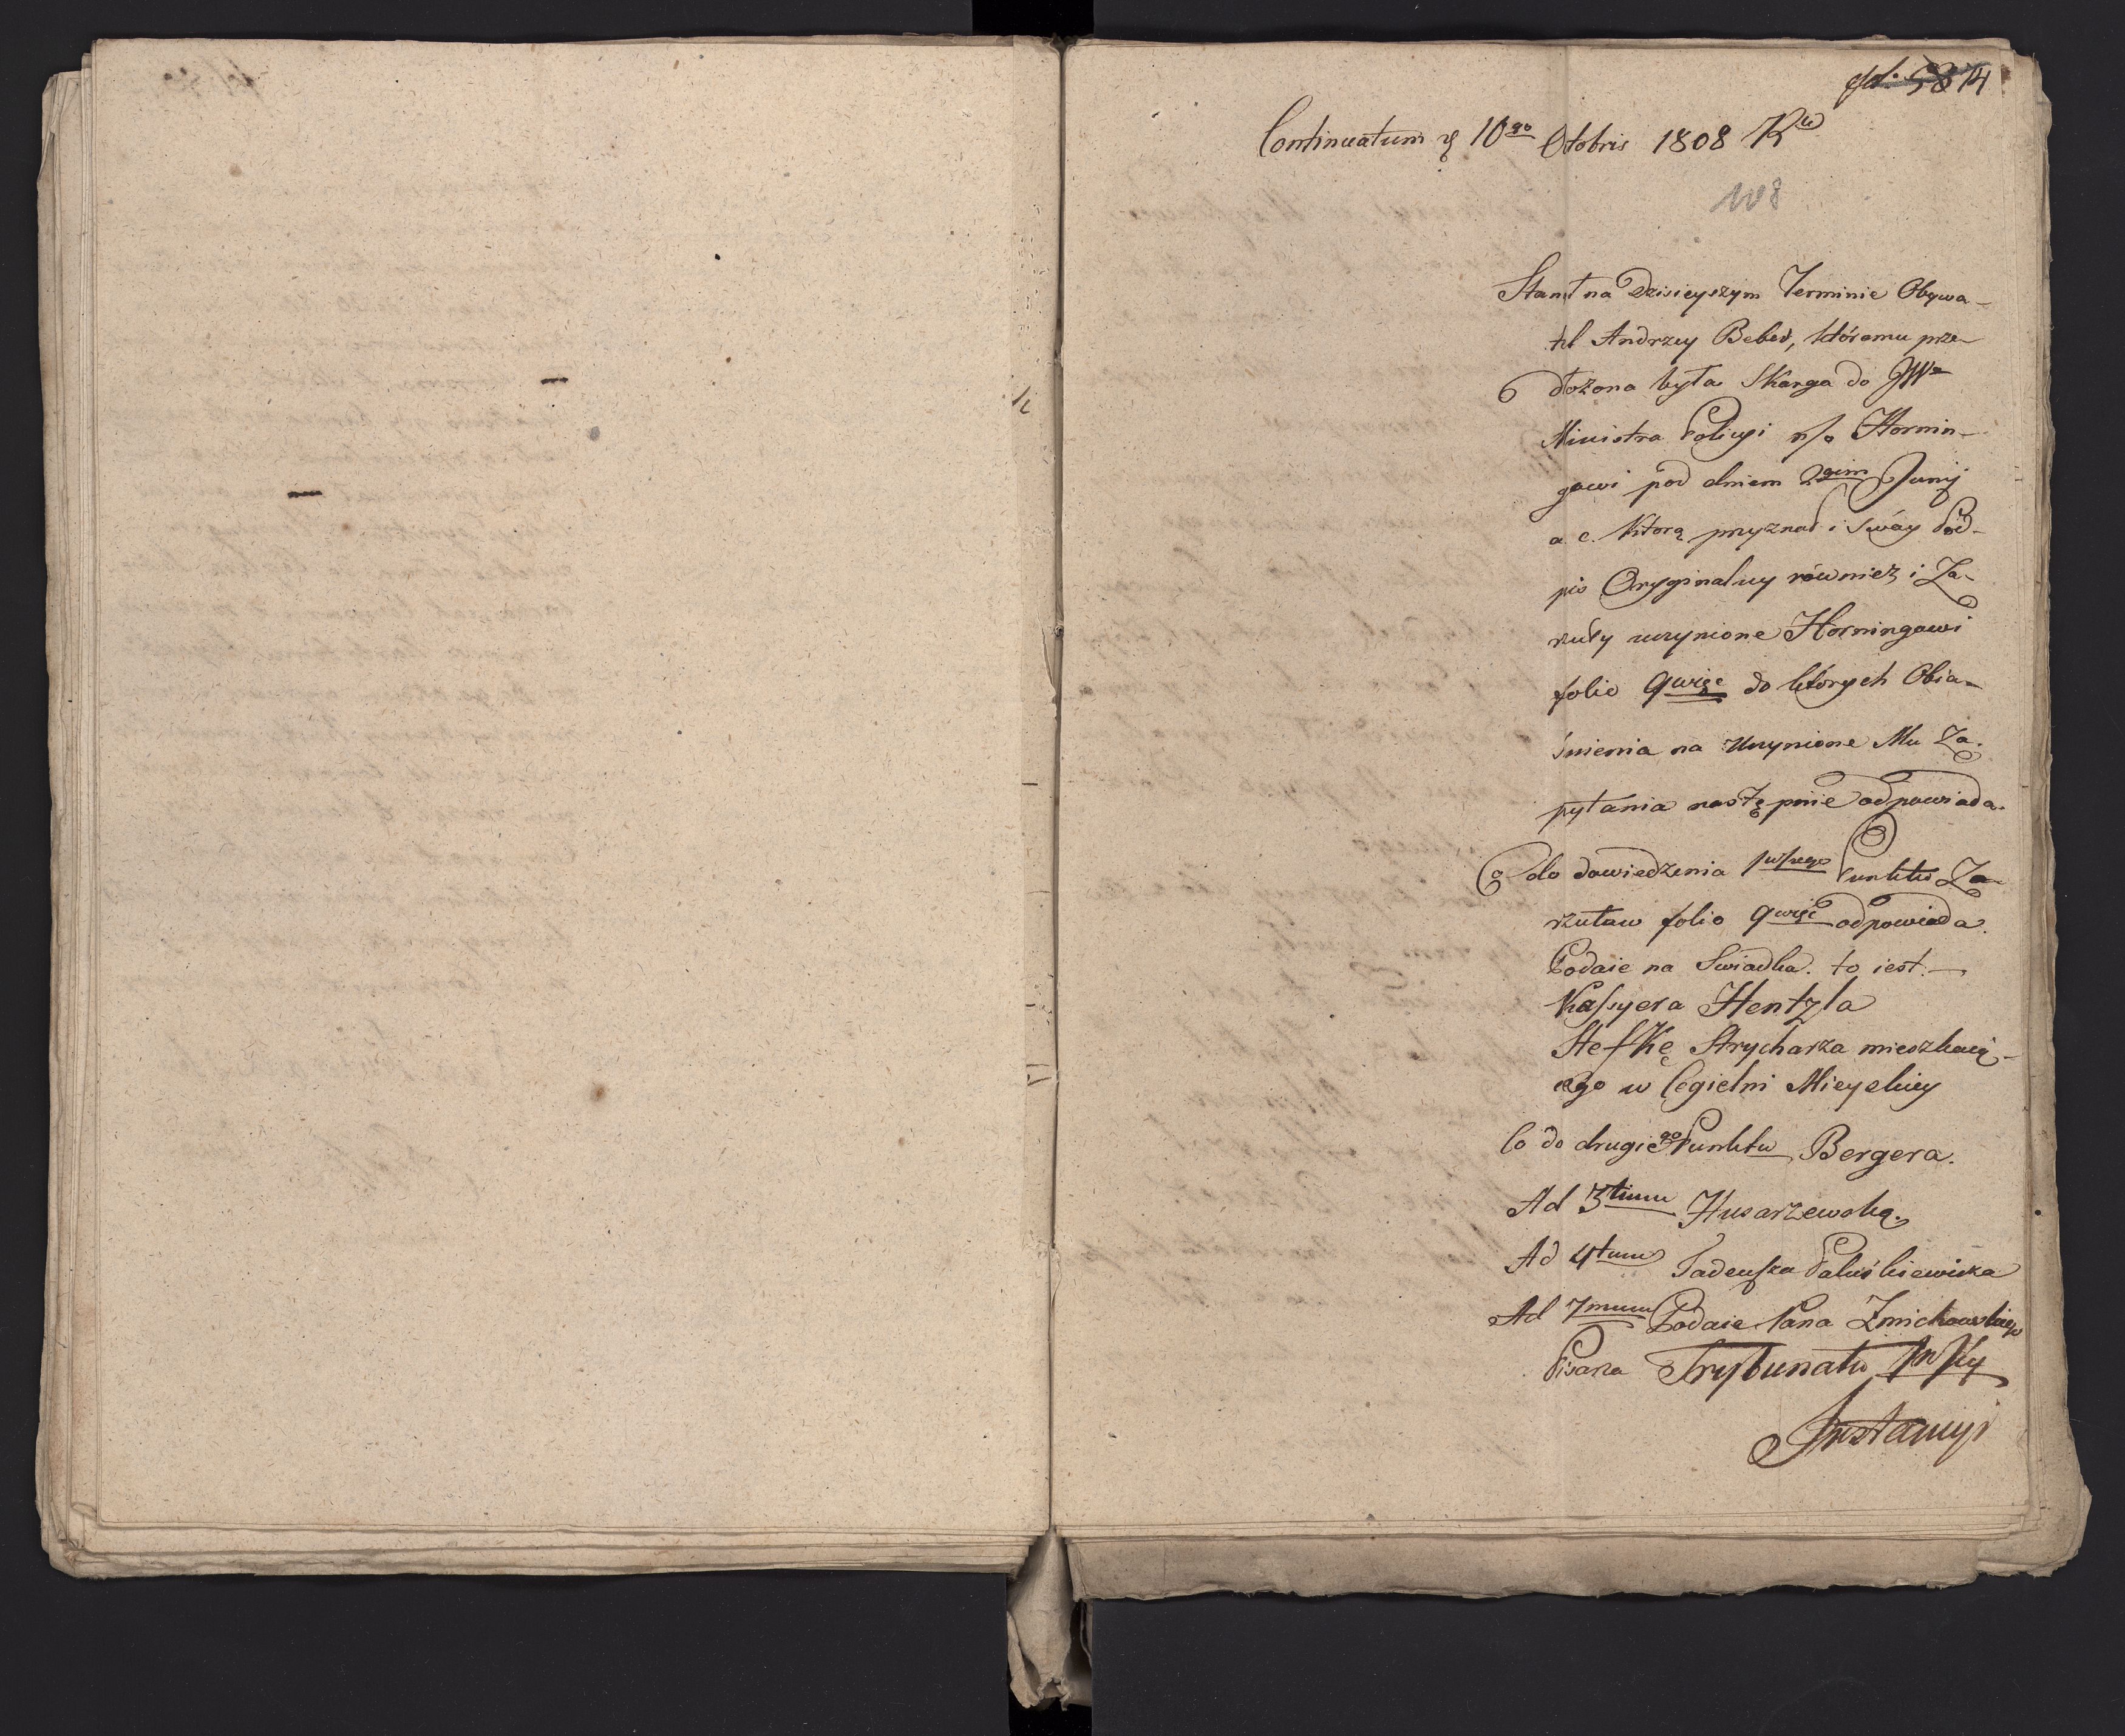 fol. 5874
Continuatum d 10go Octobris 1808 Rku
108
Stanął na dzisieyszym Terminie Obywa-
tel Andrzey Beber, któremu prze-
dłożona była Skarga do JWo
Ministra Policyi n/o Hornin-
gowi pod dniem 2gim Junij
a. c. którą przyznał i swóy Pod-
pis Oryginalny również i Za-
rzuty uczynione Horningowi
folio 9 do których Obia-
śnienia na Uczynione Mu Za-
pytania następnie odpowiada.
Co do dowiedzenia 1wszego Punktu Za-
rzutow folio 9 odpowiada.
Podaie na Swiadka. to iest.—
Kassyera Hentzla
Stefkę Strycharza mieszkaią-
cego w Cegielni Mieyskiey
Co do drugiego Punktu Bergera.
Ad 3tium Husarzewską.
Ad 4tum Tadeusza Paluśkiewicza
Ad 7mum Podaie Pana Zmichowskiego
Pisarza Trybunału
Instancyi